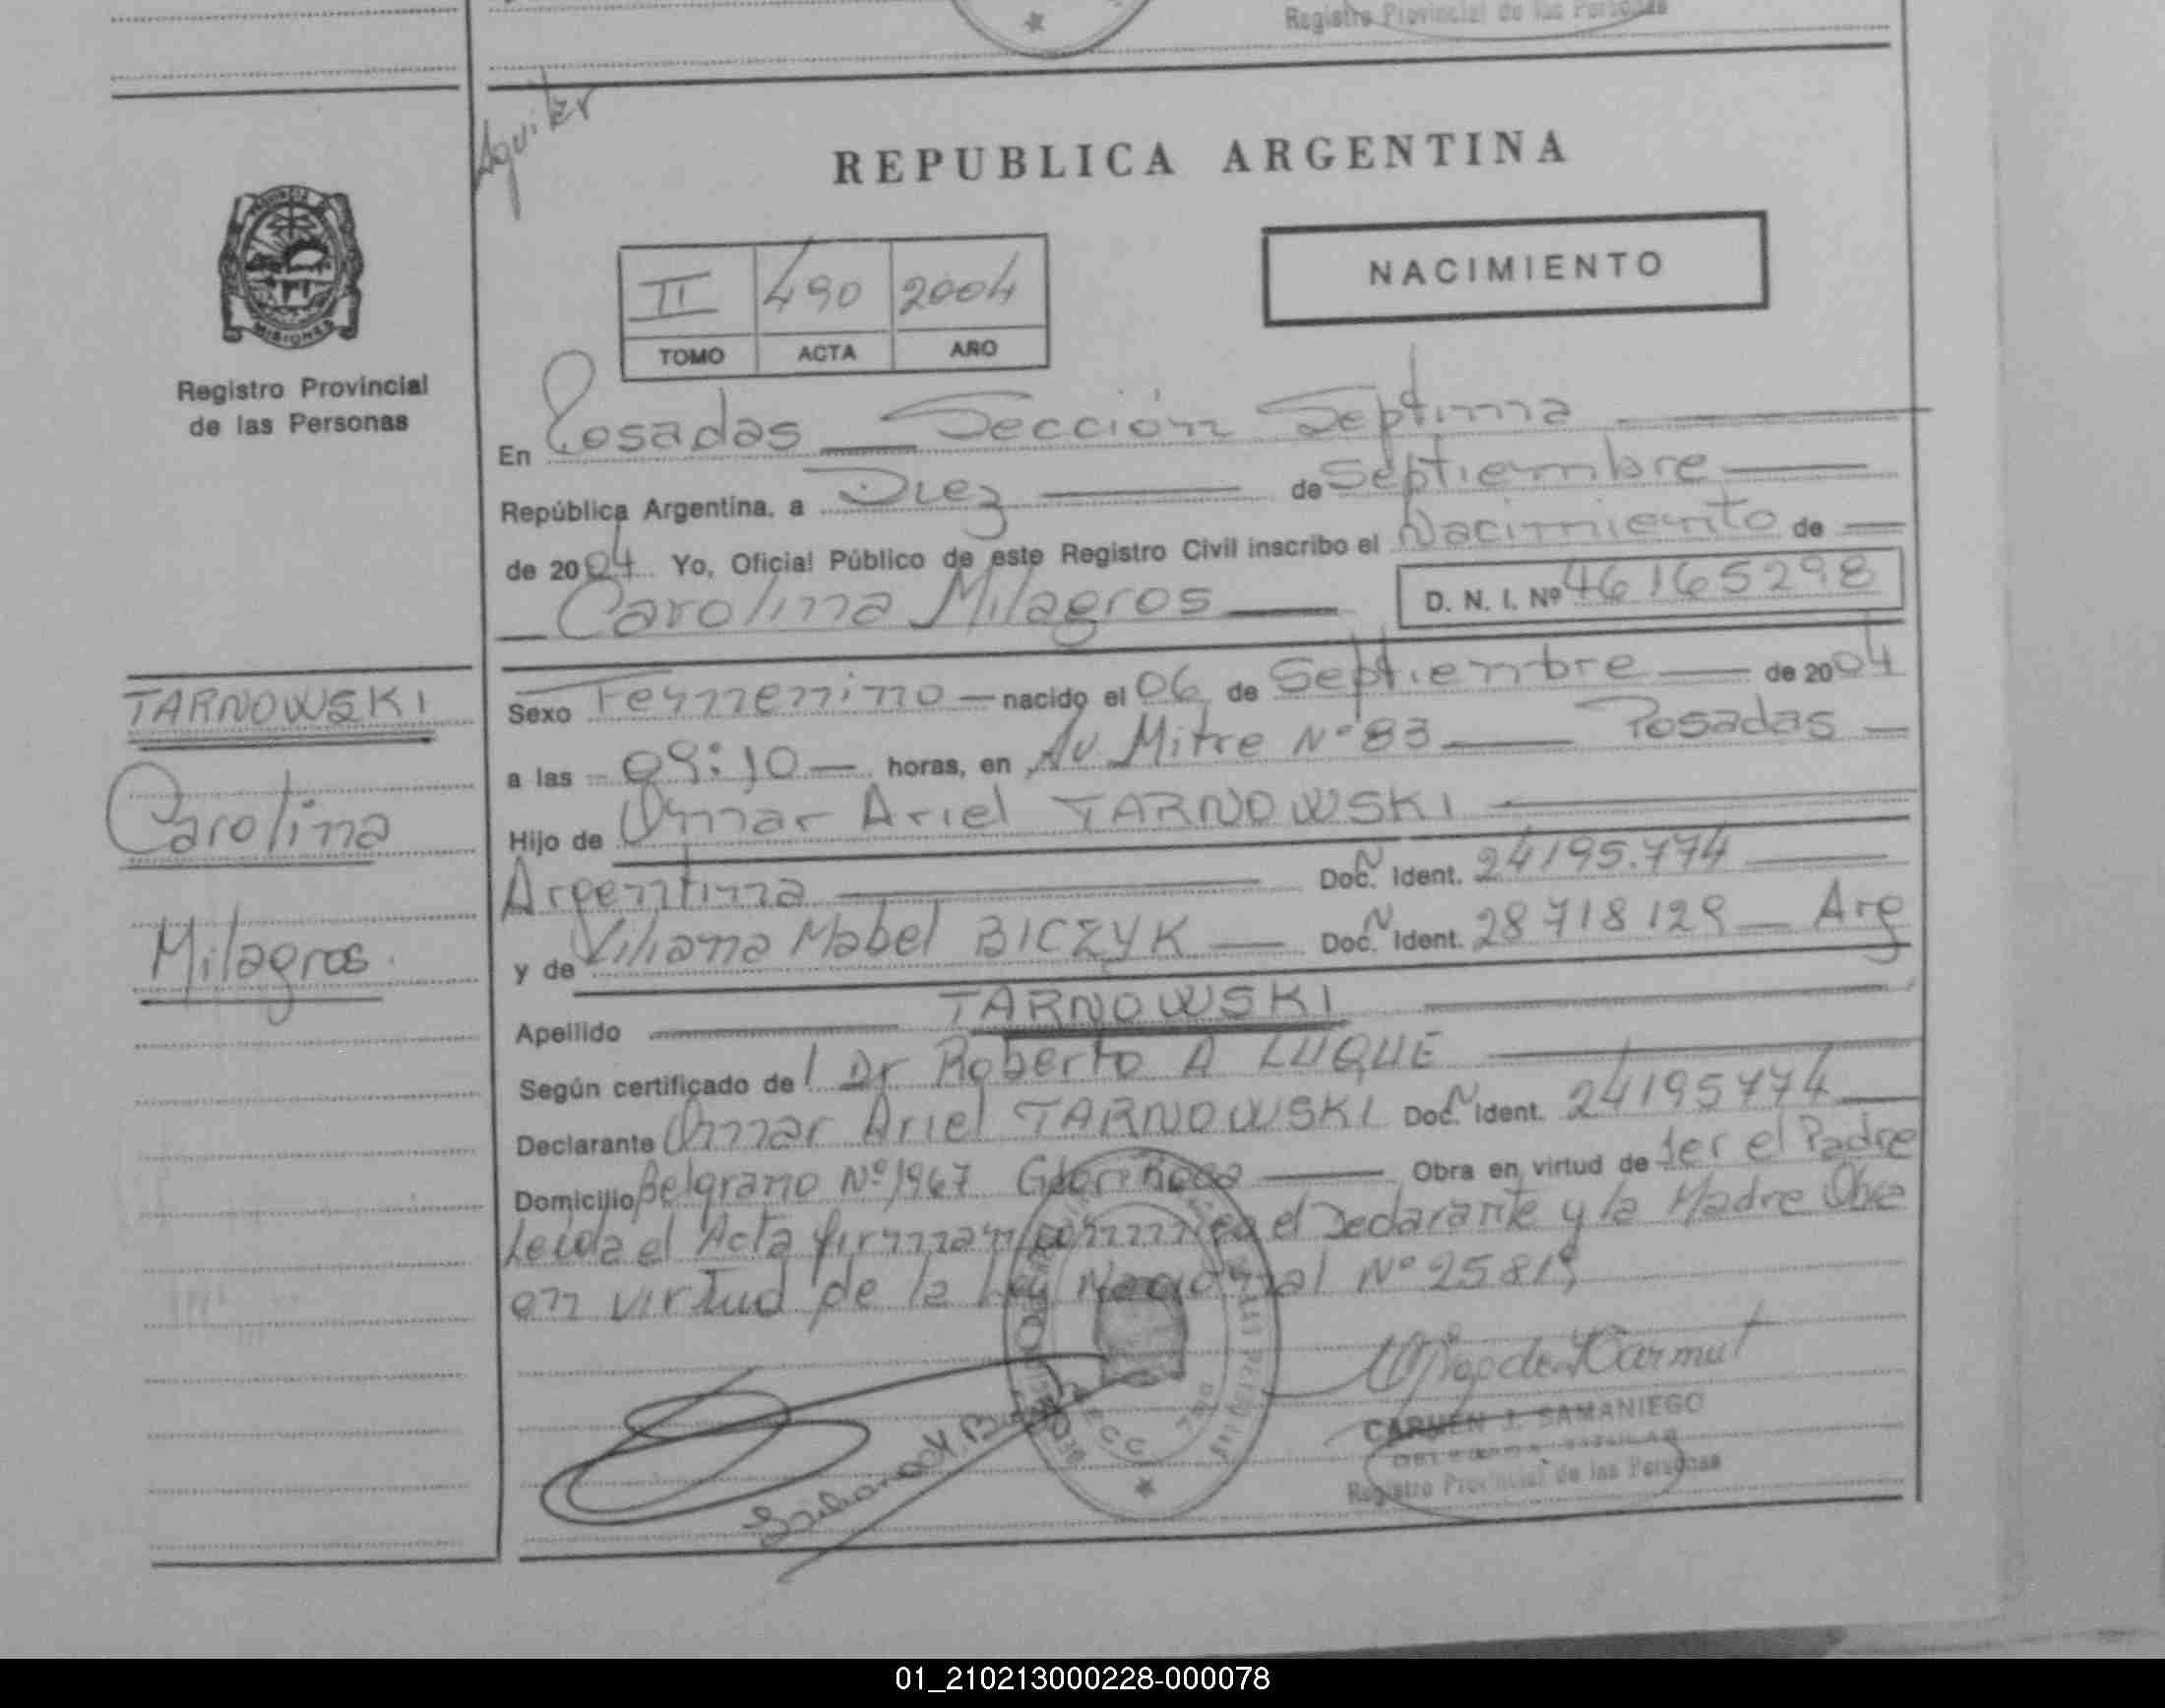 Registro Provincial de las Personas
Aguiler
MISIONES
Registro Provincial
de las Personas
REPUBLICA ARGENTINA
NACIMIENTO
II 490 2004
TOMO ACTA AÑO
En Posadas — Sección Septima —
República Argentina, a Diez — de Septiembre —
de 2004 Yo, Oficial Público de este Registro Civil inscribo el Nacimiento de —
— Carolina Milagros — D. N. I. Nº 46165298
TARNOWSKI
Carolina
Milagros.
Sexo Femenino — nacido el 06 de Septiembre — de 2004
a las 09:10 — horas, en Av. Mitre Nº 83 — Posadas —
Hijo de Omar Ariel TARNOWSKI —
Argentina — Doc. N Ident. 24195.774 —
y de Viliana Mabel BICZYK — Doc. N Ident. 28718129 — Arg
Apellido — TARNOWSKI —
Según certificado del Dr Roberto A LUQUE —
Declarante Omar Ariel TARNOWSKI Doc. N Ident. 24195774 —
Domicilio Belgrano Nº 1967 — Obra en virtud de ser el Padre
Leida el Acta firman el Declarante y la Madre
en virtud de la Ley Nacional Nº 25819
CARMEN J. SAMANIEGO
DELEGADA TITULAR
Registro Provincial de las Personas
01_210213000228-000078